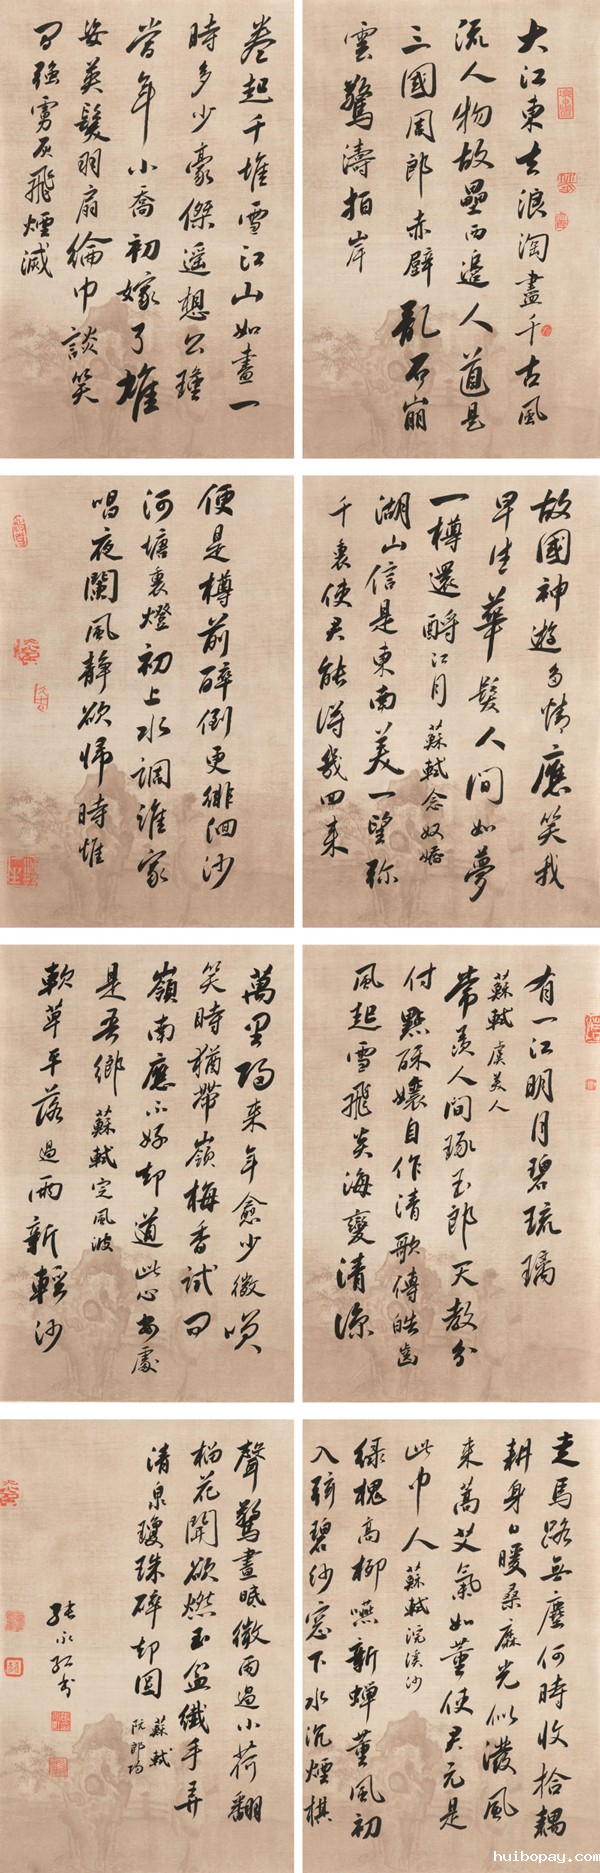 大江東去浪淘盡千古風
流人物故壘西邊人道是
三國周郎赤壁亂石崩
雲驚濤拍岸
卷起千堆雪江山如畫一
時多少豪傑遙想公瑾
當年小喬初嫁了雄
姿英髮羽扇綸巾談笑
間強虜灰飛煙滅
故國神遊多情應笑我
早生華髮人間如夢
一樽還酹江月 蘇軾念奴嬌
湖山信是東南美一望彌
千裏使君能得幾回來
便是樽前醉倒更徘徊沙
河塘裏燈初上水調誰家
唱夜闌風靜欲歸時惟
有一江明月碧琉璃
蘇軾虞美人
常羨人間琢玉郎天教分
付點酥孃自作清歌傳皓齒
風起雪飛炎海變清涼
萬里歸來年愈少微
笑時猶帶嶺梅香試問
嶺南應不好却道此心安處
是吾鄉 蘇軾定風波
軟草平莎過雨新輕沙
走馬路無塵何時收拾耦
耕身日暖桑麻光似潑風
來蒿艾氣如薰使君元是
此中人 蘇軾浣溪沙
綠槐高柳咽新蟬薰風初
入弦碧紗窗下水沉煙棋
聲驚晝眠微雨過小荷翻
榴花開欲燃玉盆纖手弄
清泉瓊珠碎却圓
蘇軾
阮郎歸
huibopay.com